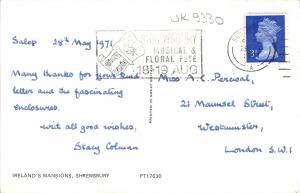 UK 9330
Salop 28th May 1971
SHREWSBURY
MUSICAL &
FLORAL FETE
18-19 AUG
3P
Many thanks for your kind
letter and the fascinating
enclosures.
with all good wishes,
Stacy Colman
Miss A. C. Percival,
21 Maunsel Street,
Westminster,
London S.W.1
IRELAND'S MANSIONS, SHREWSBURY
PT17630